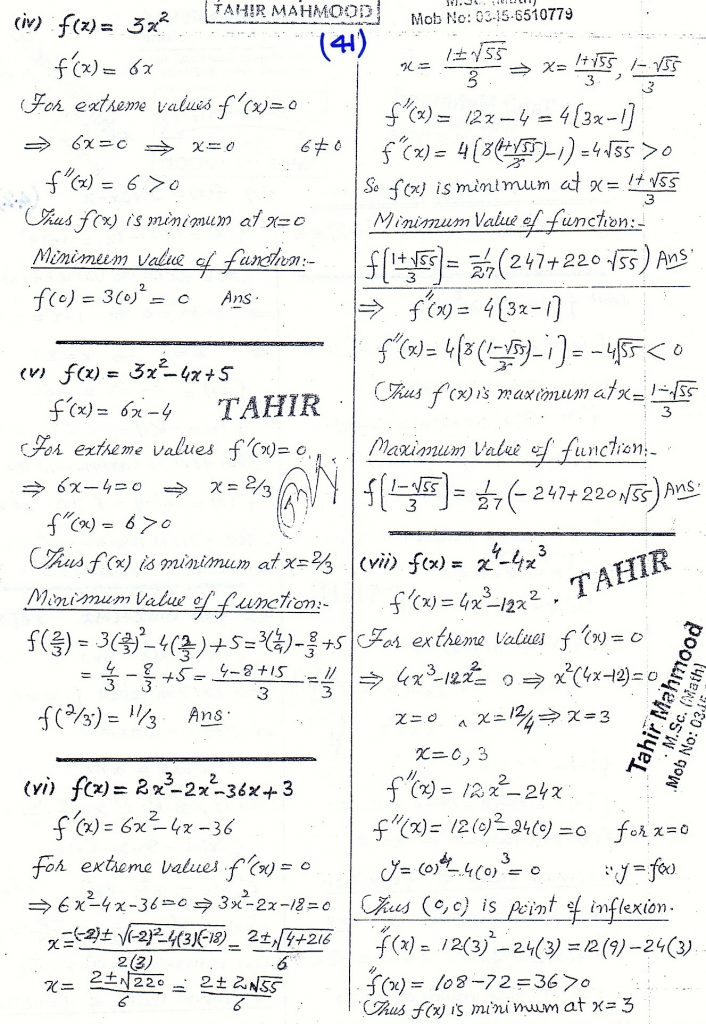 TAHIR MAHMOOD
Mob No: 0345-6510779
(41)
(iv) f(x) = 3x²
f'(x) = 6x
For extreme values f'(x) = 0
⇒ 6x = 0 ⇒ x = 0 6 ≠ 0
f''(x) = 6 > 0
Thus f(x) is minimum at x = 0
Minimeem value of function:-
f(0) = 3(0)² = 0 Ans.
(v) f(x) = 3x² - 4x + 5
f'(x) = 6x - 4 TAHIR
For extreme values f'(x) = 0.
⇒ 6x - 4 = 0 ⇒ x = 2/3
f''(x) = 6 > 0
Thus f(x) is minimum at x = 2/3
Minimum Value of function:-
f(2/3) = 3(2/3)² - 4(2/3) + 5 = 3(4/9) - 8/3 + 5
= 4/3 - 8/3 + 5 = (4 - 8 + 15)/3 = 11/3
f(2/3) = 11/3 Ans.
(vi) f(x) = 2x³ - 2x² - 36x + 3
f'(x) = 6x² - 4x - 36
for extreme values f'(x) = 0
⇒ 6x² - 4x - 36 = 0 ⇒ 3x² - 2x - 18 = 0
x = (-(-2) ± √((-2)² - 4(3)(-18)))/2(3) = (2 ± √(4 + 216))/6
x = (2 ± √220)/6 = (2 ± 2√55)/6
x = (1 ± √55)/3 ⇒ x = (1 + √55)/3, (1 - √55)/3
f''(x) = 12x - 4 = 4[3x - 1]
f''(x) = 4[3((1 + √55)/3) - 1) = 4√55 > 0
So f(x) is minimum at x = (1 + √55)/3
Minimum Value of function:-
f[(1 + √55)/3] = -1/27 (247 + 220 √55) Ans.
⇒ f''(x) = 4[3x - 1]
f''(x) = 4[3((1 - √55)/3) - 1] = -4√55 < 0
Thus f(x) is maximum at x = (1 - √55)/3
Maximum Value of function:-
f[(1 - √55)/3] = 1/27 (-247 + 220√55) Ans.
(vii) f(x) = x⁴ - 4x³
TAHIR
f'(x) = 4x³ - 12x².
For extreme values f'(x) = 0
⇒ 4x³ - 12x² = 0 ⇒ x²(4x - 12) = 0
x = 0, x = 12/4 ⇒ x = 3
x = 0, 3
f''(x) = 12x² - 24x
f''(x) = 12(0)² - 24(0) = 0 for x = 0
y = (0)⁴ - 4(0)³ = 0 ∵ y = f(x)
Thus (0,0) is point of inflexion.
f''(x) = 12(3)² - 24(3) = 12(9) - 24(3)
f''(x) = 108 - 72 = 36 > 0
Thus f(x) is minimum at x = 3
Tahir Mahmood
M.Sc. (Math)
Mob No: 0345